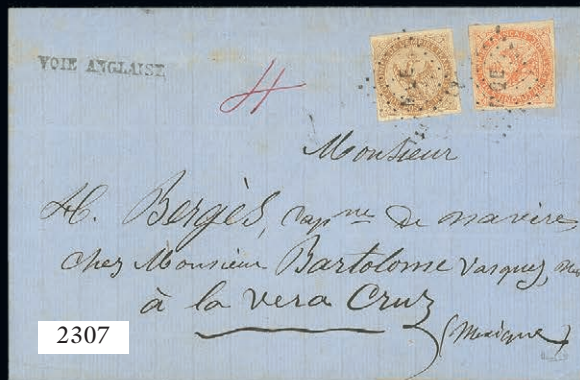 VOIE ANGLAISE
4
Monsieur
H. Bergès, cap^ne de navire
chez Monsieur Bartolome Vasquez,
à la vera Cruz
(Mexique)
2307